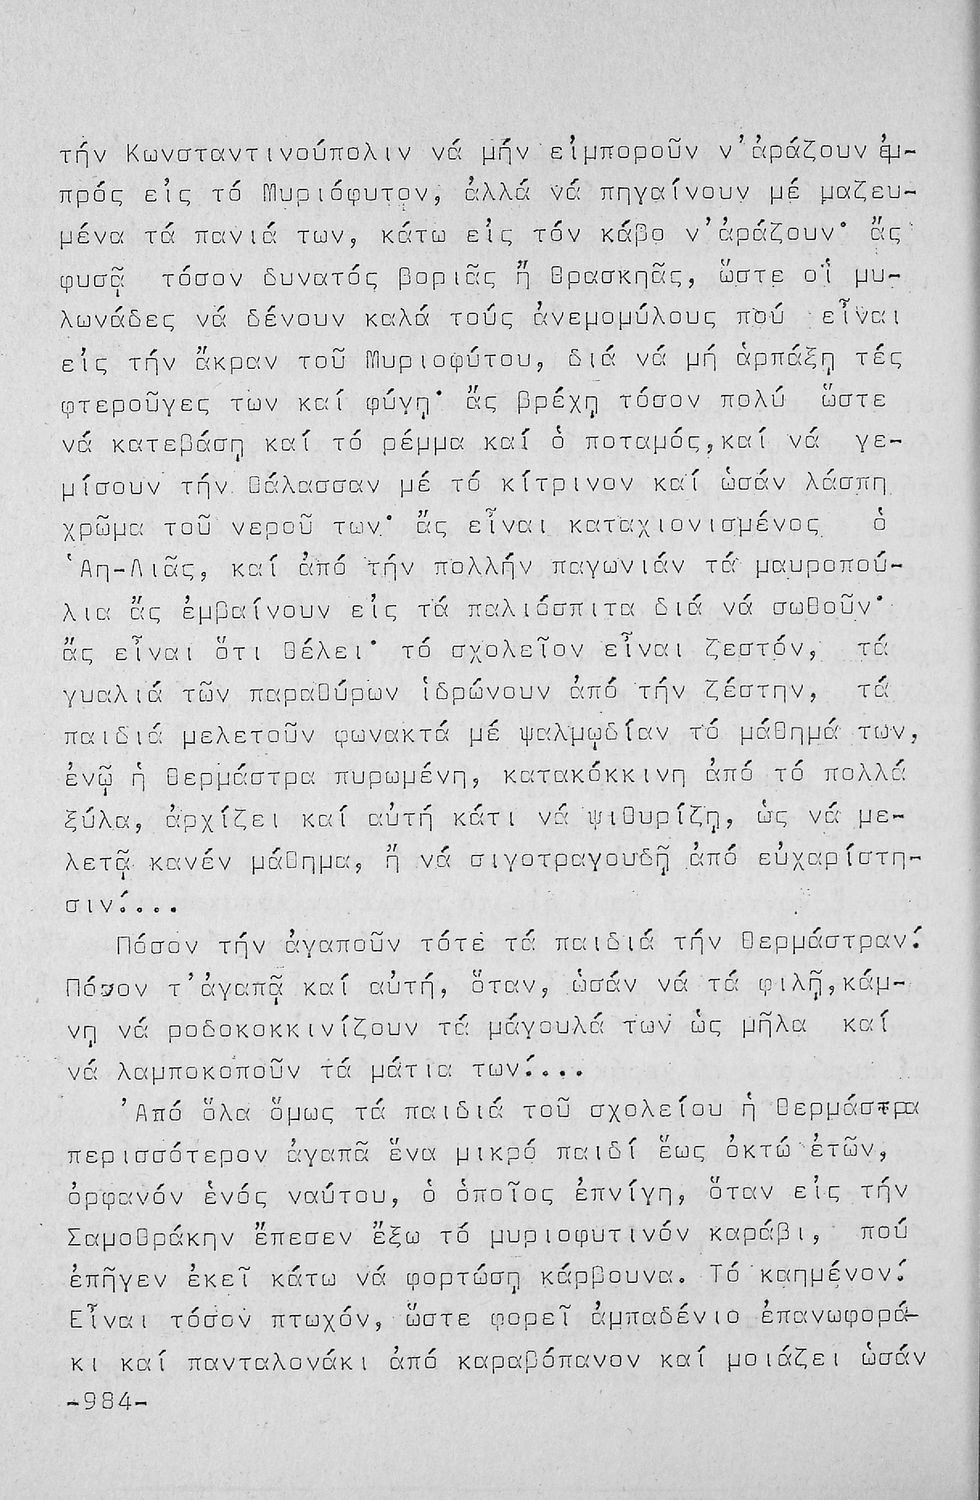 τήν Κωνσταντινούπολιν νά μήν εἰμποροῦν ν'ἀράζουν ἐμ-
πρός εἰς τό Μυριόφυτον, ἀλλά νά πηγαίνουν μέ μαζευ-
μένα τά πανιά των, κάτω εἰς τόν κάβο ν'ἀράζουν· ἄς
φυσᾷ τόσον δυνατός βοριᾶς ἤ θρασκηᾶς, ὥστε οἱ μυ-
λωνάδες νά δένουν καλά τούς ἀνεμομύλους πού εἶναι
εἰς τήν ἄκραν τοῦ Μυριοφύτου, διά νά μή ἁρπάξῃ τές
φτεροῦγες των καί φύγῃ· ἄς βρέχῃ τόσον πολύ ὥστε
νά κατεβάσῃ καί τό ρέμμα καί ὁ ποταμός,καί νά γε-
μίσουν τήν θάλασσαν μέ τό κίτρινον καί ὡσάν λάσπη
χρῶμα τοῦ νεροῦ των· ἄς εἶναι καταχιονισμένος ὁ
Ἁη-Λιᾶς, καί ἀπό τήν πολλήν παγωνιάν τά μαυροπού-
λια ἄς ἐμβαίνουν εἰς τά παλιόσπιτα διά νά σωθοῦν·
ἄς εἶναι ὅτι θέλει· τό σχολεῖον εἶναι ζεστόν, τά
γυαλιά τῶν παραθύρων ἱδρώνουν ἀπό τήν ζέστην, τά
παιδιά μελετοῦν φωνακτά μέ ψαλμῳδίαν τό μάθημά των,
ἐνῷ ἡ θερμάστρα πυρωμένη, κατακόκκινη ἀπό τό πολλά
ξύλα, ἀρχίζει καί αὐτή κάτι νά ψιθυρίζῃ, ὡς νά με-
λετᾷ κανέν μάθημα, ἤ νά σιγοτραγουδῇ ἀπό εὐχαρίστη-
σιν!...
Πόσον τήν ἀγαποῦν τότε τά παιδιά τήν θερμάστραν!
Πόσον τ'ἀγαπᾷ καί αὐτή, ὅταν, ὡσάν νά τά φιλῇ,κάμ-
νῃ νά ροδοκοκκινίζουν τά μάγουλά των ὡς μῆλα καί
νά λαμποκοποῦν τά μάτια των!...
Ἀπό ὅλα ὅμως τά παιδιά τοῦ σχολείου ἡ θερμάστρα
περισσότερον ἀγαπᾶ ἕνα μικρό παιδί ἕως ὀκτώ ἐτῶν,
ὀρφανόν ἑνός ναύτου, ὁ ὁποῖος ἐπνίγη, ὅταν εἰς τήν
Σαμοθράκην ἔπεσεν ἔξω τό μυριοφυτινόν καράβι, πού
ἐπῆγεν ἐκεῖ κάτω νά φορτώσῃ κάρβουνα. Τό καημένον!
Εἶναι τόσον πτωχόν, ὥστε φορεῖ ἀμπαδένιο ἐπανωφορά-
κι καί πανταλονάκι ἀπό καραβόπανον καί μοιάζει ὡσάν
-984-